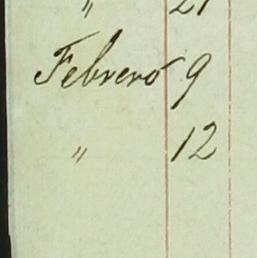 " 21
Febrero 9
" 12